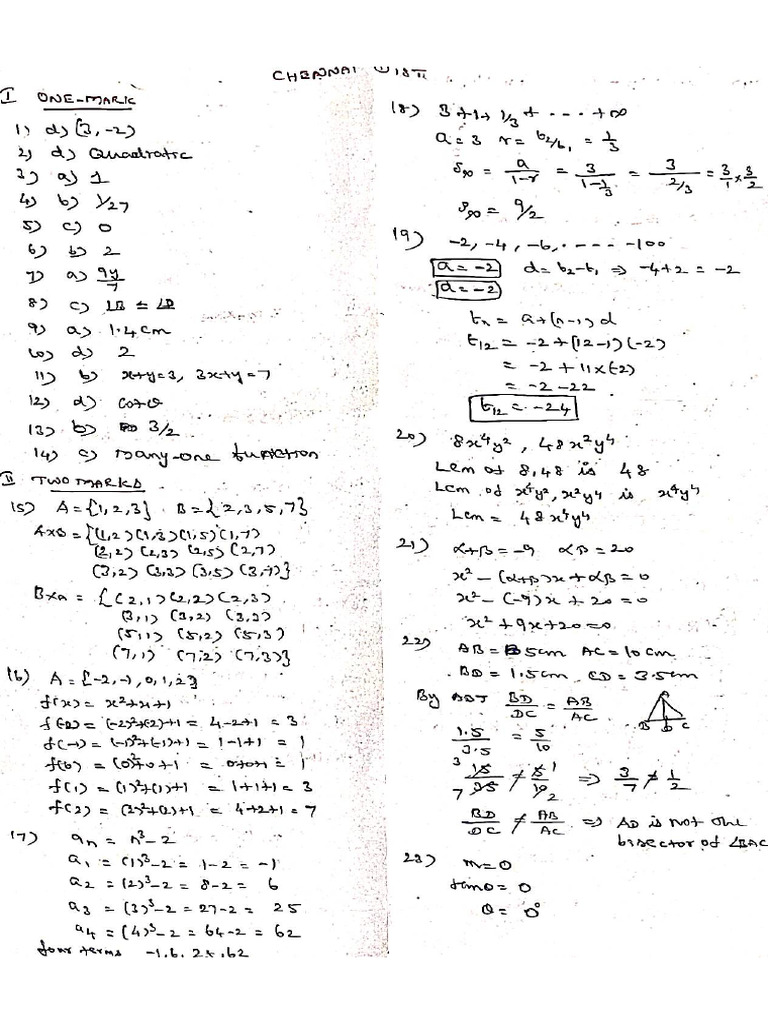 CHENNAI DIST
I ONE-MARK
1) d) (3, -2)
2) d) Quadratic
3) a) 1
4) b) 1/27
5) c) 0
6) b) 2
7) a) 9y/7
8) c) ∠B = ∠D
9) a) 1.4 cm
10) d) 2
11) b) x+y=3, 3x+y=7
12) d) cotθ
13) b) 3/2
14) c) Many-one function
II TWO MARKS
15) A={1,2,3} B={2,3,5,7}
AxB={(1,2)(1,3)(1,5)(1,7)
(2,2)(2,3)(2,5)(2,7)
(3,2)(3,3)(3,5)(3,7)}
BxA = {(2,1)(2,2)(2,3)
(3,1)(3,2)(3,3)
(5,1)(5,2)(5,3)
(7,1)(7,2)(7,3)}
16) A={-2,-1,0,1,2}
f(x) = x²+x+1
f(-2) = (-2)²+(-2)+1 = 4-2+1 = 3
f(-1) = (-1)²+(-1)+1 = 1-1+1 = 1
f(0) = (0)²+0+1 = 0+0+1 = 1
f(1) = (1)²+(1)+1 = 1+1+1 = 3
f(2) = (2)²+(2)+1 = 4+2+1 = 7
17) aₙ = n³-2
a₁ = (1)³-2 = 1-2 = -1
a₂ = (2)³-2 = 8-2 = 6
a₃ = (3)³-2 = 27-2 = 25
a₄ = (4)³-2 = 64-2 = 62
four terms -1, 6, 25, 62
18) 3+1+1/3+ .... +∞
a=3 r= t₂/t₁ = 1/3
S∞ = a/1-r = 3/1-1/3 = 3/2/3 = 3/1 x 3/2
S∞ = 9/2
19) -2, -4, -6, ..... -100
a=-2 d=t₂-t₁ ⇒ -4+2 = -2
a=-2
tₙ = a+(n-1)d
t₁₂ = -2+(12-1)(-2)
= -2+11x(-2)
= -2-22
t₁₂ = -24
20) 8x⁴y², 48x²y⁴
Lcm of 8,48 is 48
Lcm of x⁴y², x²y⁴ is x⁴y⁴
Lcm = 48x⁴y⁴
21) α+β=-9 αβ=20
x²-(α+β)x+αβ=0
x²-(-9)x+20=0
x²+9x+20=0
22) AB = 5cm AC=10cm
BD = 1.5cm CD=3.5cm
By ABT BD/DC = AB/AC
A
B D C
1.5/3.5 = 5/10
3 15/7 35 ≠ 5 1/10 2 ⇒ 3/7 ≠ 1/2
BD/DC ≠ AB/AC ⇒ AD is not the
bisector of ∠BAC
23) m=0
tanθ=0
θ= 0°